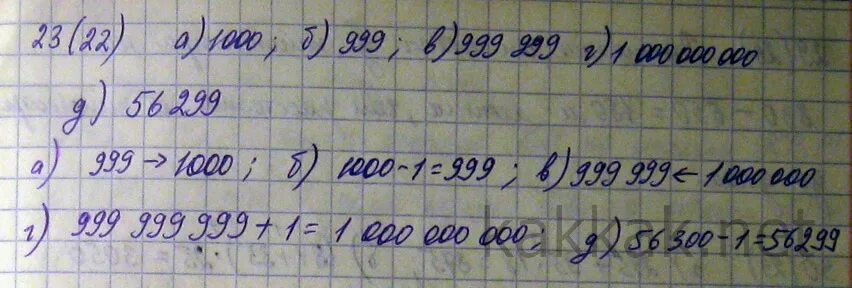 23(22) а) 1000; б) 999; в) 999 999 г) 1 000 000 000
д) 56 299
а) 999 → 1000; б) 1000-1=999; в) 999 999 ← 1 000 000
г) 999 999 999 + 1 = 1 000 000 000; д) 56 300-1=56299
kakkak.net